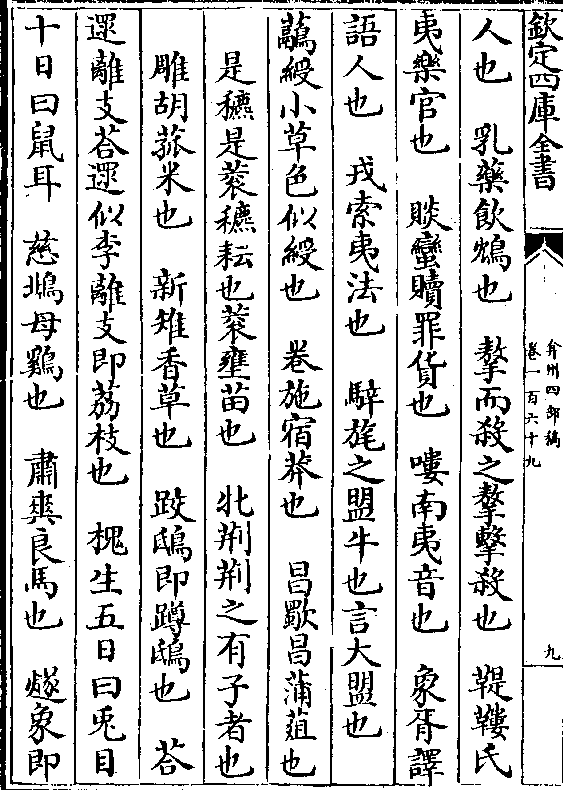 欽定四庫全書
弇州四部稿
卷一百六十九
九
人也　乳藥飲鴆也　摮而殺之摮擊殺也　鞮鞻氏
夷樂官也　賧蠻贖罪貨也　嘍南夷音也　象胥譯
語人也　戎索夷法也　騂旄之盟牛也言大盟也
虉綬小草色似綬也　卷施宿莽也　昌歜昌蒲菹也
是穮是蔉穮耘也蔉壅苗也　牝荆荆之有子者也
雕胡菰米也　新雉香草也　踆鴟即蹲鴟也　荅
遝離支荅遝似李離支即荔枝也　槐生五日曰兎目
十日曰鼠耳　慈鴓母鷄也　肅爽良馬也　㸂象即